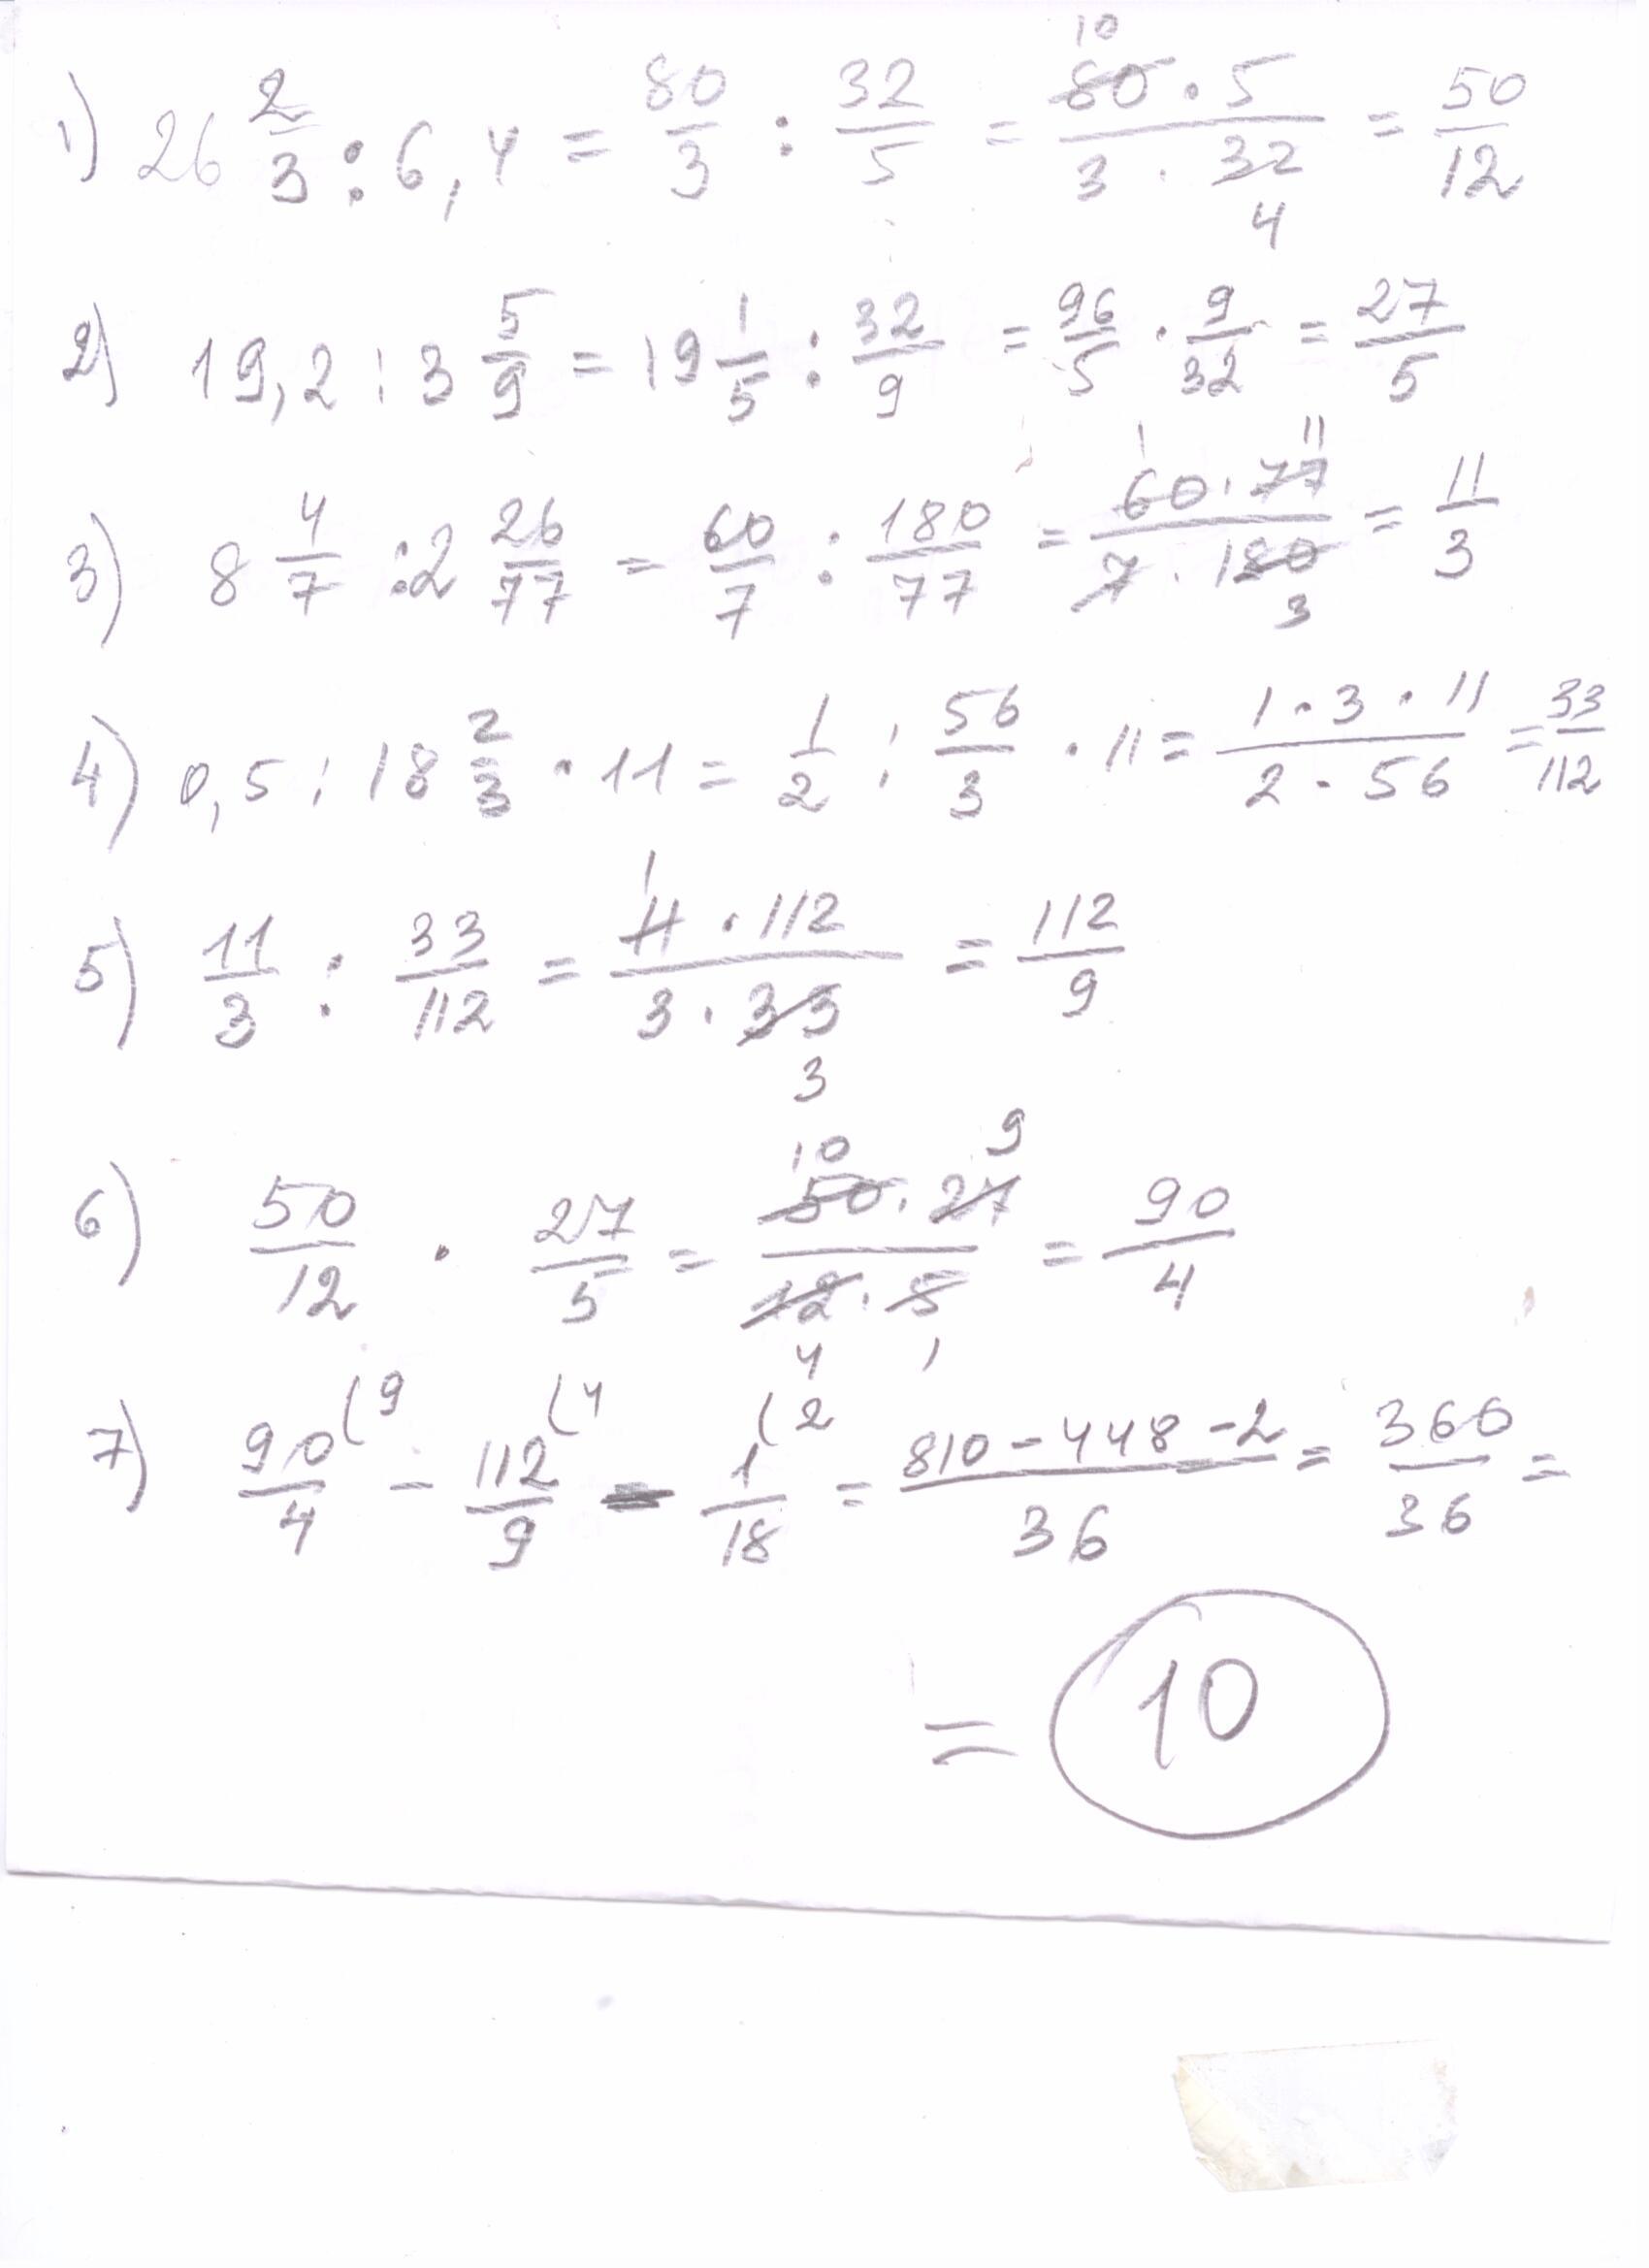 1) 26 2/3 : 6,4 = 80/3 : 32/5 = 80 · 5 / 3 · 32 = 50/12
10
4
2) 19,2 : 3 5/9 = 19 1/5 : 32/9 = 96/5 · 9/32 = 27/5
3) 8 4/7 : 2 26/77 = 60/7 : 180/77 = 60 · 77 / 7 · 180 = 11/3
1 11
3
4) 0,5 : 18 2/3 · 11 = 1/2 : 56/3 · 11 = 1 · 3 · 11 / 2 · 56 = 33/112
5) 11/3 : 33/112 = 11 · 112 / 3 · 33 = 112/9
1
3
6) 50/12 · 27/5 = 50 · 27 / 12 · 5 = 90/4
10 9
4 1
7) 90/4 (9 - 112/9 (4 - 1/18 (2 = 810 - 448 - 2 / 36 = 360/36 =
= 10